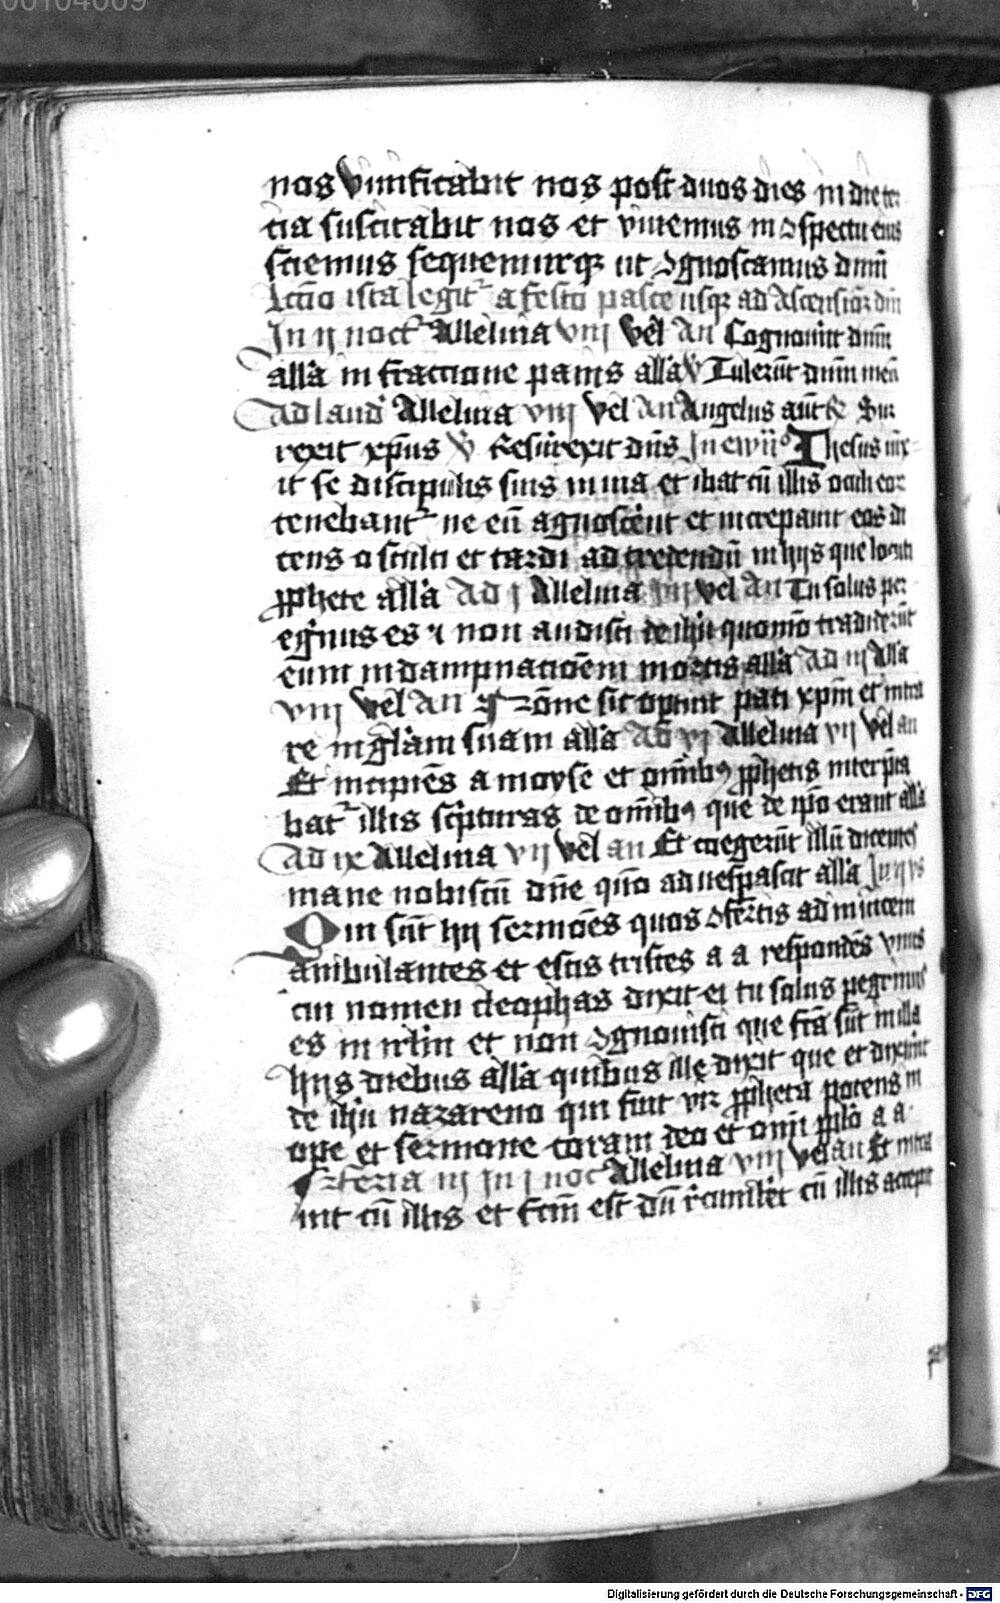 00104009
nos Viuificabit nos post duos dies in die ter
cia suscitabit nos et viuemus in ꝯspectu eius
sciemus sequemurqꝫ ut ꝯgnoscamus dnm̄
Lctio ista legit᷑ a festo pasce usqꝫ ad Ascensiōꝫ dnī
In ij noct᷑ Alleluia viij vel an Cognouit dnm̄
alla in fractione panis alla ℣ Tulerūt dnm̄ meū
Ad laud Alleluia viij vel an Angelus aūt ⁊c Sur
rexit xp̄us ℣ Resurrexit dn̄s In ewū Ihesus iūx
it se discipulis suis in uia et ibat cū illis oculi eoꝝ
tenebant᷑ ne eū agnoscent et increpauit eos di
cens o stulti et tardi ad credendū in hijs que locuti
ꝓphete alla Ad j Alleluia viij vel an Tu solus per
egrinus es ⁊ non audisti de ihū quomō tradiderūt
eum in dampnacōem mortis alla Ad iij Alla
viij vel an Nōne sic oportuit pati xpm̄ et intra
re in glām suam alla Ad vj Alleluia vij vel an
Et incipiēs a moyse et omībꝯ ꝓphetis interp̄ta
bat᷑ illis scripturas de omībꝯ que de ip̄o erant alla
Ad ix Alleluia vij vel an Et coegerūt illū dicentes
mane nobiscū dn̄e qm̄o aduesp̄ascit alla In ij vs
Qui sūt hij sermōes quos ꝯfertis ad inuicem
ambulantes et estis tristes a a respondēs vnus
cui nomen cleophas dixit ei tu solus pegrinus
es in irlm̄ et non ꝯgnouisti que fc̄a sūt in illa
hijs diebus alla quibus ille dixit que et dixerūt
de ihū nazareno qui fuit vir ꝓpheta potens in
ope et sermone coram deo et omī pplo a a
Feria iij In j noc Alleluia viij vel an Et intra
uit cū illis et fc̄m est dū recumbēt cū illis accepit
Digitalisierung gefördert durch die Deutsche Forschungsgemeinschaft - DFG